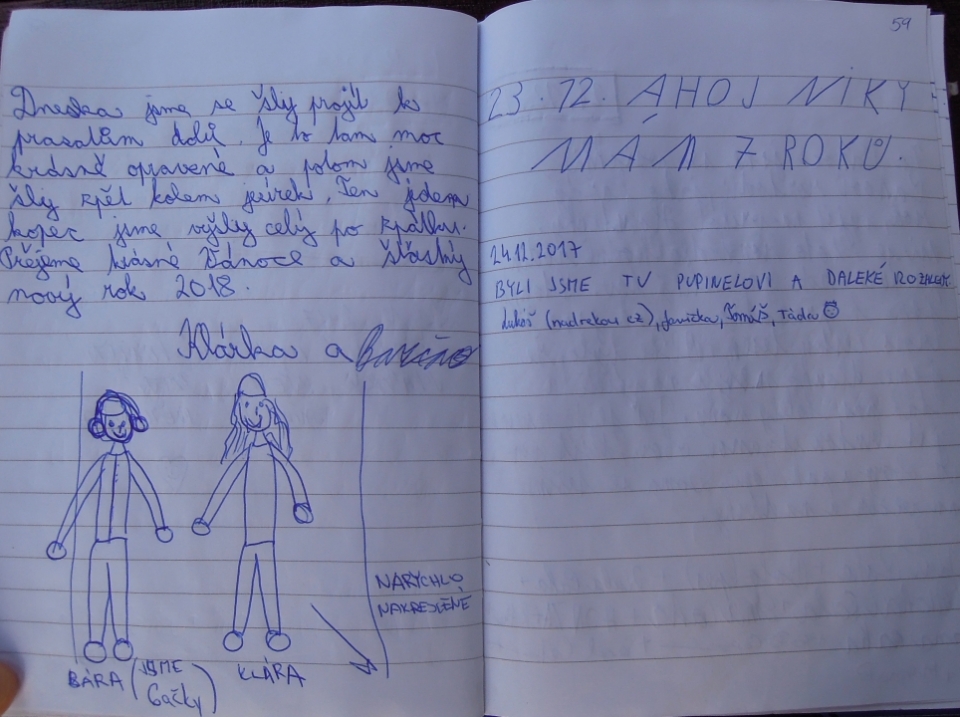 Dneska jsme se šly projít k
prasatům dolů. Je to tam moc
krásně opravené a potom jsme
šly zpět kolem jezírek. Ten jeden
kopec jsme vyšly celý po zpátku.
Přejeme krásné Vánoce a šťastný
nový rok 2018.
Klárka a
NARYCHLO
NAKRESLENÉ
BÁRA (JSME KLÁRA
6ačky)
59
23.12. AHOJ NIKY
MÁM 7 ROKŮ.
24.12.2017
BYLI JSME TU PUPINELOVI A DALEKÉ
Lukáš (nadrekou cz), Janička, Tomáš, Táda